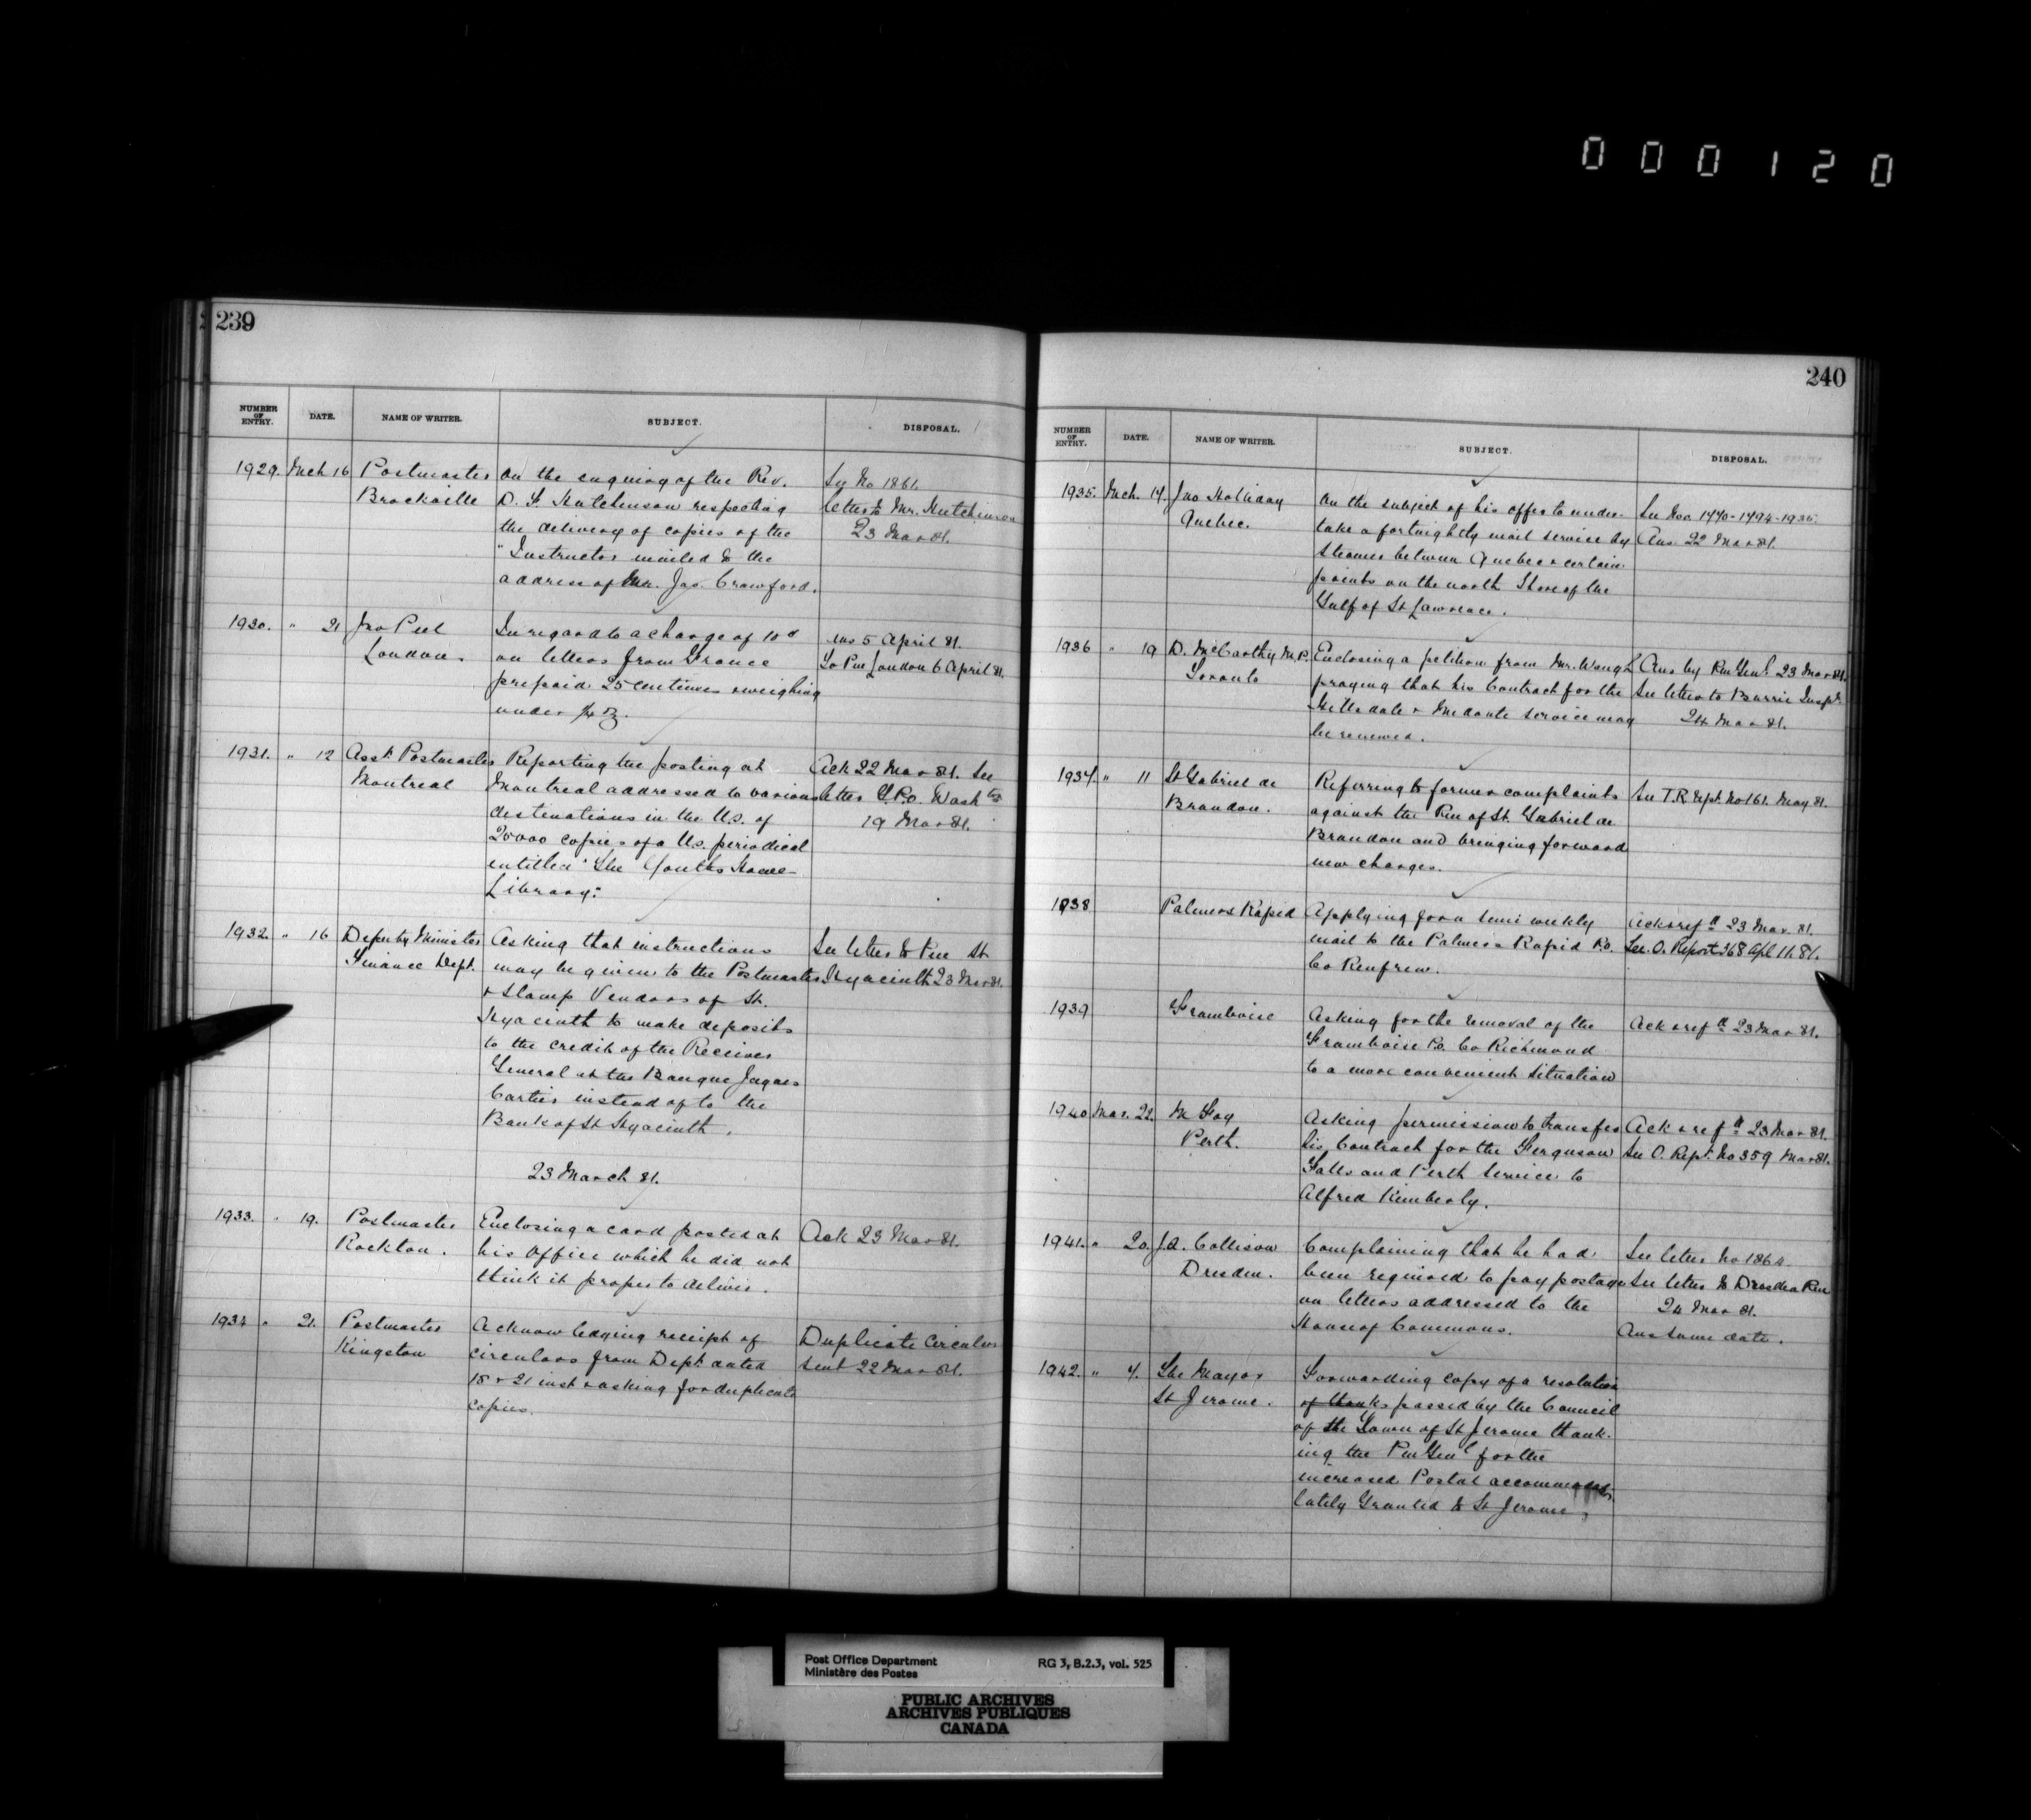 000120
239
NUMBER OF ENTRY. DATE. NAME OF WRITER. SUBJECT. DISPOSAL.
1929. Mch 16 Postmaster On the enquiry of the Rev. See No 1861.
Brockville D. F. Hutchinson respecting letter to Mr. Hutchinson
the delivery of copies of the 23 Mar 81.
"Instructor mailed to the
address of Mr. Jas. Crawford.
1930. " 21 Jno Peel In regard to a charge of 10d Ans 5 April 81.
London. on letters from France To Pm London 6 April 81.
prepaid 25 centimes & weighing
under ½ oz.
1931. " 12 Asst. Postmaster Reporting the posting at Ack 22 Mar 81. See
Montreal Montreal addressed to various letter G.P.O. Washtn
destinations in the U.S. of 19 Mar 81.
25000 copies of a U.S. periodical
entitled "The Youths Home
Library."
1932. " 16 Deputy Minister Asking that instructions See letter to Pm St
Finance Dept. may be given to the Postmaster Hyacinth 23 Mar 81.
& Stamp Vendors of St.
Hyacinth to make deposits
to the credit of the Receiver
General at the Banque Jaques
Cartier instead of to the
Bank of St Hyacinth.
23 March 81.
1933. " 19. Postmaster Enclosing a card posted at Ack 23 Mar 81.
Rockton. his Office which he did not
think it proper to deliver.
1934 " 21. Postmaster Acknowledging receipt of Duplicate Circulars
Kingston circulars from Dept. dated sent 22 Mar 81.
18 & 21 inst & asking for duplicate
copies.
240
NUMBER OF ENTRY. DATE. NAME OF WRITER. SUBJECT. DISPOSAL.
1935. Mch. 14. Jno Holliday On the subject of his offer to under- See Nos. 1440-1494-1935.
Quebec. take a fortnightly mail service by Ans. 22 Mar 81.
steamer between Quebec & certain
points on the north Shore of the
Gulf of St Lawrence.
1936 " 19 D. McCarthy M.P. Enclosing a petition from Mr. Ans by Pm Genl. 23 Mar 81.
Toronto praying that his Contract for the See letter to Barrie Inspr.
& Medonte service may 24 Mar 81.
be renewed.
1937. " 11 St Gabriel de Referring to former complaints See T.R. Rept. No 161. May 81.
Brandon. against the Pm of St. Gabriel de
Brandon and bringing forward
new charges.
1938 Palmers Rapid Applying for a semi weekly Ack & refd 23 Mar. 81.
mail to the Palmers Rapid P.O. See O. Report 368 Apl 11. 81.
Co Renfrew.
1939 Framboise Asking for the removal of the Ack & refd 23 Mar 81.
Framboise P.O. Co Richmond
to a more convenient situation
1940 Mar. 22. M Foy Asking permission to transfer Ack & refd 23 Mar 81.
Perth. his Contract for the Ferguson See O. Rept. No 359 Mar 81.
Falls and Perth service to
Alfred Kimberly.
1941. " 20. J.A. Collison Complaining that he had See letter No 1864.
Dresden. been required to pay postage See letter to Dresden Pm
on letters addressed to the 24 Mar 81.
House of Commons. Ans same date.
1942. " 4. The Mayor Forwarding copy of a resolution
St Jerome. of thanks passed by the Council
of the Town of St Jerome thank-
ing the Pm Genl for the
increased Postal accommodation
lately Granted to St Jerome,
Post Office Department RG 3, B.2.3, vol. 525
Ministère des Postes
PUBLIC ARCHIVES
ARCHIVES PUBLIQUES
CANADA